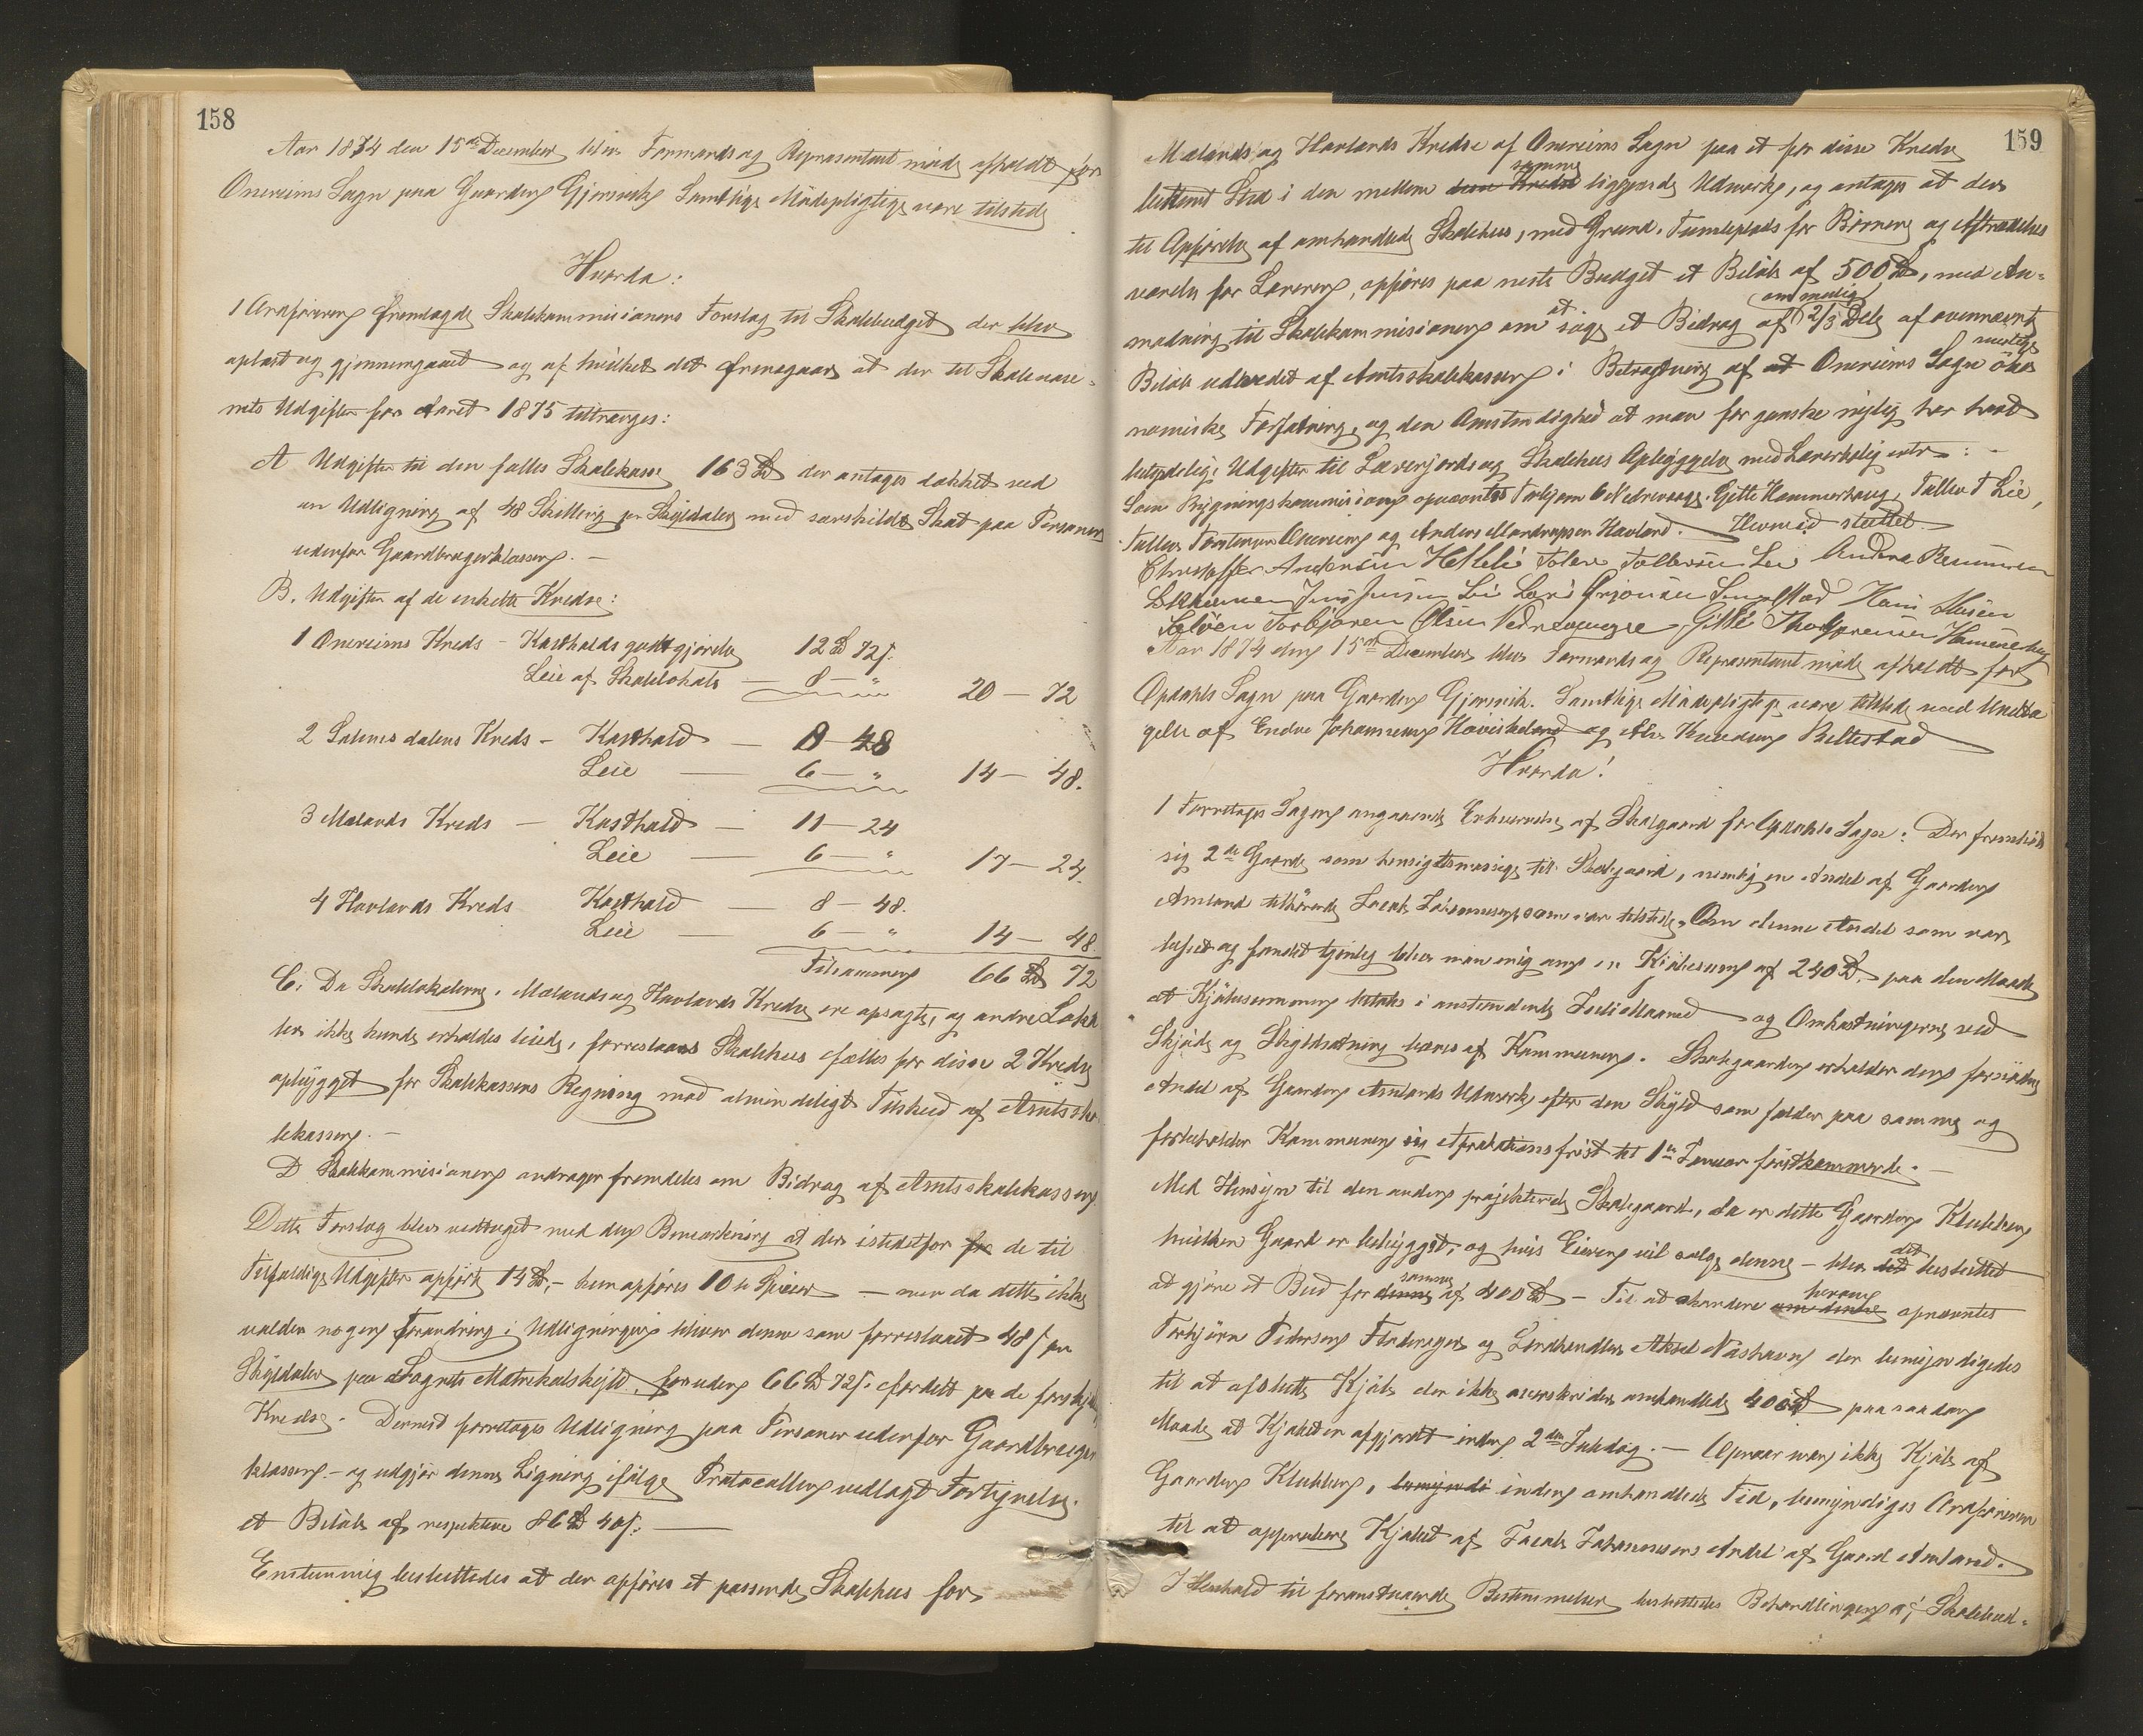 158
Aar 1874 den 15de December blev Formands og Repræsentant møde afholdt for
Onereims Sogn paa Gaarden Gjersvik Samtlige Mødepligtige vare tilstede
Hvorda:
1 Ordføreren fremlagde Skolekommisionens Forslag til Skolebudget der blev
oplæst og gjennemgaaet og af hvilket det fremgaar at der til Skolevæse-
nets Udgifter for Aaret 1875 tiltrænges:
A Udgifter til den fælles Skolekasse 163 Spd der antages dækket ved
en Udligning af 48 Skilling pr Skyldaler med særskildt Skat paa Personer
udenfor Gaardbrugerklassen. —
B. Udgifter af de enkelte Kredse:
1 Onereims Kreds – Kostholds godtgjørelse 12 Spd 72 s.
Leie af Skolelokale — 8 — " 20 — 72
2 Salemsdalens Kreds – Kosthold — 8 – 48
Leie — 6 — " 14 — 48.
3 Mælands Kreds — Kosthold — 11 – 24
Leie — 6 — " 17 — 24.
4 Hovlands Kreds Kosthold — 8 – 48.
Leie — 6 — " 14 — 48.
Tilsammen 66 Spd 72
C. Da Skolelokalerne i Mælands og Hovlands Kredse ere opsagte, og andre Loka
ler ikke kunde erholdes leiede, forreslaaes Skolehus fælles for disse 2 Kredse
opbygget for Skolekassens Regning med almindeligt Tilskud af Amtssko-
lekassen. —
D Skolekommisionen andrager fremdeles om Bidrag af Amtsskolekassen
Dette Forslag blev vedtaget med den Bemærkning at der istedetfor for de til
Tilfældige Udgifter opført 14 Spd, – kun opføres 10 Spd — men da dette ikke
volder nogen Forandring i Udligningen bliver denne som forreslaaet 48 s pr
Skyldaler paa Sognets Matrikulskyld, foruden 66 Spd 72 s. fordelt paa de forskje
Kredse. Dernæst forretoges Udligning paa Personer udenfor Gaardbruger
klassen – og udgjør denne Ligning ifølge Protocollen vedlagt Fortegnelse
et Beløb af respektive 86 Spd 40 s. —
Enstemmig besluttedes at der opføres et passende Skolehus for
159
Mælands og Hovlands Kredse af Onereims Sogn paa et for disse Kredse
samme
bestemt Sted i den mellem disse Kredse liggende Udmark, og antages at der
til Opførelse af omhandlede Skolehus, med Grund, Tumleplads for Børnene og Aftrædelses
værelse for Læreren, opføres paa neste Budget et Beløb af 500 Spd, med An-
om mulig
modning til Skolekommisionen om at søge et Bidrag af 2/3 Dele af ovennævnte
mislige
Beløb udredet af Amtsskolekassen i Betragtning af at Onereims Sogn øko
nomiske Forfatning, og den Omstendighed at man for ganske nylig har havt
betydelige Udgifter til Lærerjord og Skolehus Opbyggelse med Lærerbolig etc: –
Som Bygningskommision opnævntes Torbjørn O Nedrevaage, Gitte Hammerhaug, Tollev T Lie,
Tollev Onereim og Anders Hovland. — Hermed sluttet —
Christoffer Andersen Tolev Tollevsen Lie Andre Rasmussen
Jens Jensen Lie Lars Hans Hansen
Torbjøren Olsen Nedrevaage, Gitte Hammerhaug
Aar 1874 den 15de December blev Formands og Repræsentant møde afholdt for
Opdahls Sogn paa Gaarden Gjersvik. Samtlige Mødepligtige vare tilstede med Undta
gelse af Endre Johannesen Høviskeland og Ole Knudsen Beltestad
Hvorda!
1 Forretoges Sagen angaaende Erhvervelse af Skolegaard for Opdahls Sogn. Der fremstillede
sig 2de Gaarde som hensigtsmæssige til Skolegaard, nemlig en Andel af Gaarden
Amland tilhørende Jacob Johannessen som var tilstede. Om denne Andel som var
beseet og fundet tjenlig blev man enig om en Kjøbesum af 240 Spd. paa den Maade
at Kjøbesummen betales i anstundende Juli Maaned og Omkostningerne ved
Skjøde og Skyldsætning bæres af Kommunen. Skolegaarden erholder den fornødne
Andel af Gaarden Amlands Udmark efter den Skyld som falder paa samme og
forbeholder Kommunen sig Approbationsfrist til 1ste Januar førstkommende. —
Med Hensyn til den anden projekterede Skolegaard, da er dette Gaarden Klubben
hvilken Gaard er bebygget, og hvis Eieren vil sælge denne – blev det besluttet
samme
at gjøre et Bud for denne af 400 Spd – Til at akordere herom om denne opnævntes
Torbjørn Pedersen Flateraker og Landhandler Aksel Næshavn der bemyndigedes
til at afslutte Kjøb der ikke overskrider omhandlede 400 Spd paa saadan
Maade at Kjøbet er afgjordt inden 2den Juledag. — Opnaar man ikke Kjøb af
Gaarden Klubben, bemyndi inden omhandlede Tid, bemyndiges Ordføreren
til at approbere Kjøbet af Jacob Johannessens Andel af Gaard Amland.
I Henhold til foranstaaende Bestemmelser besluttedes Behandlingen af Skolebud-